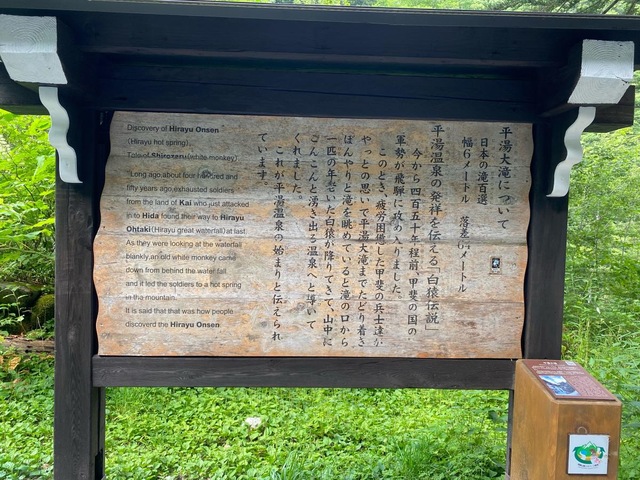 Discovery of Hirayu Onsen
(Hirayu hot spring)
Tale of Shirozaru(white monkey)
Long ago about four hundred and
fifty years ago exhausted soldiers
from the land of Kai who just attacked
in to Hida found their way to Hirayu
Ohtaki(Hirayu great waterfall)at last.
As they were looking at the waterfall
blankly,an old white monkey came
down from behind the water fall
and it led the soldiers to a hot spring
in the mountain.
It is said that that was how people
discoverd the Hirayu Onsen
平湯大滝について
日本の滝百選
幅6メートル 落差64メートル
平湯温泉の発祥を伝える「白猿伝説」
今から四百五十年程前、甲斐の国の
軍勢が飛騨に攻め入りました。
このとき、疲労困憊した甲斐の兵士達が
やっとの思いで平湯大滝までたどり着き
ぼんやりと滝を眺めていると滝の口から
一匹の年老いた白猿が降りてきて、山中に
こんこんと湧き出る温泉へと導いて
くれました。
これが平湯温泉の始まりと伝えられ
ています。